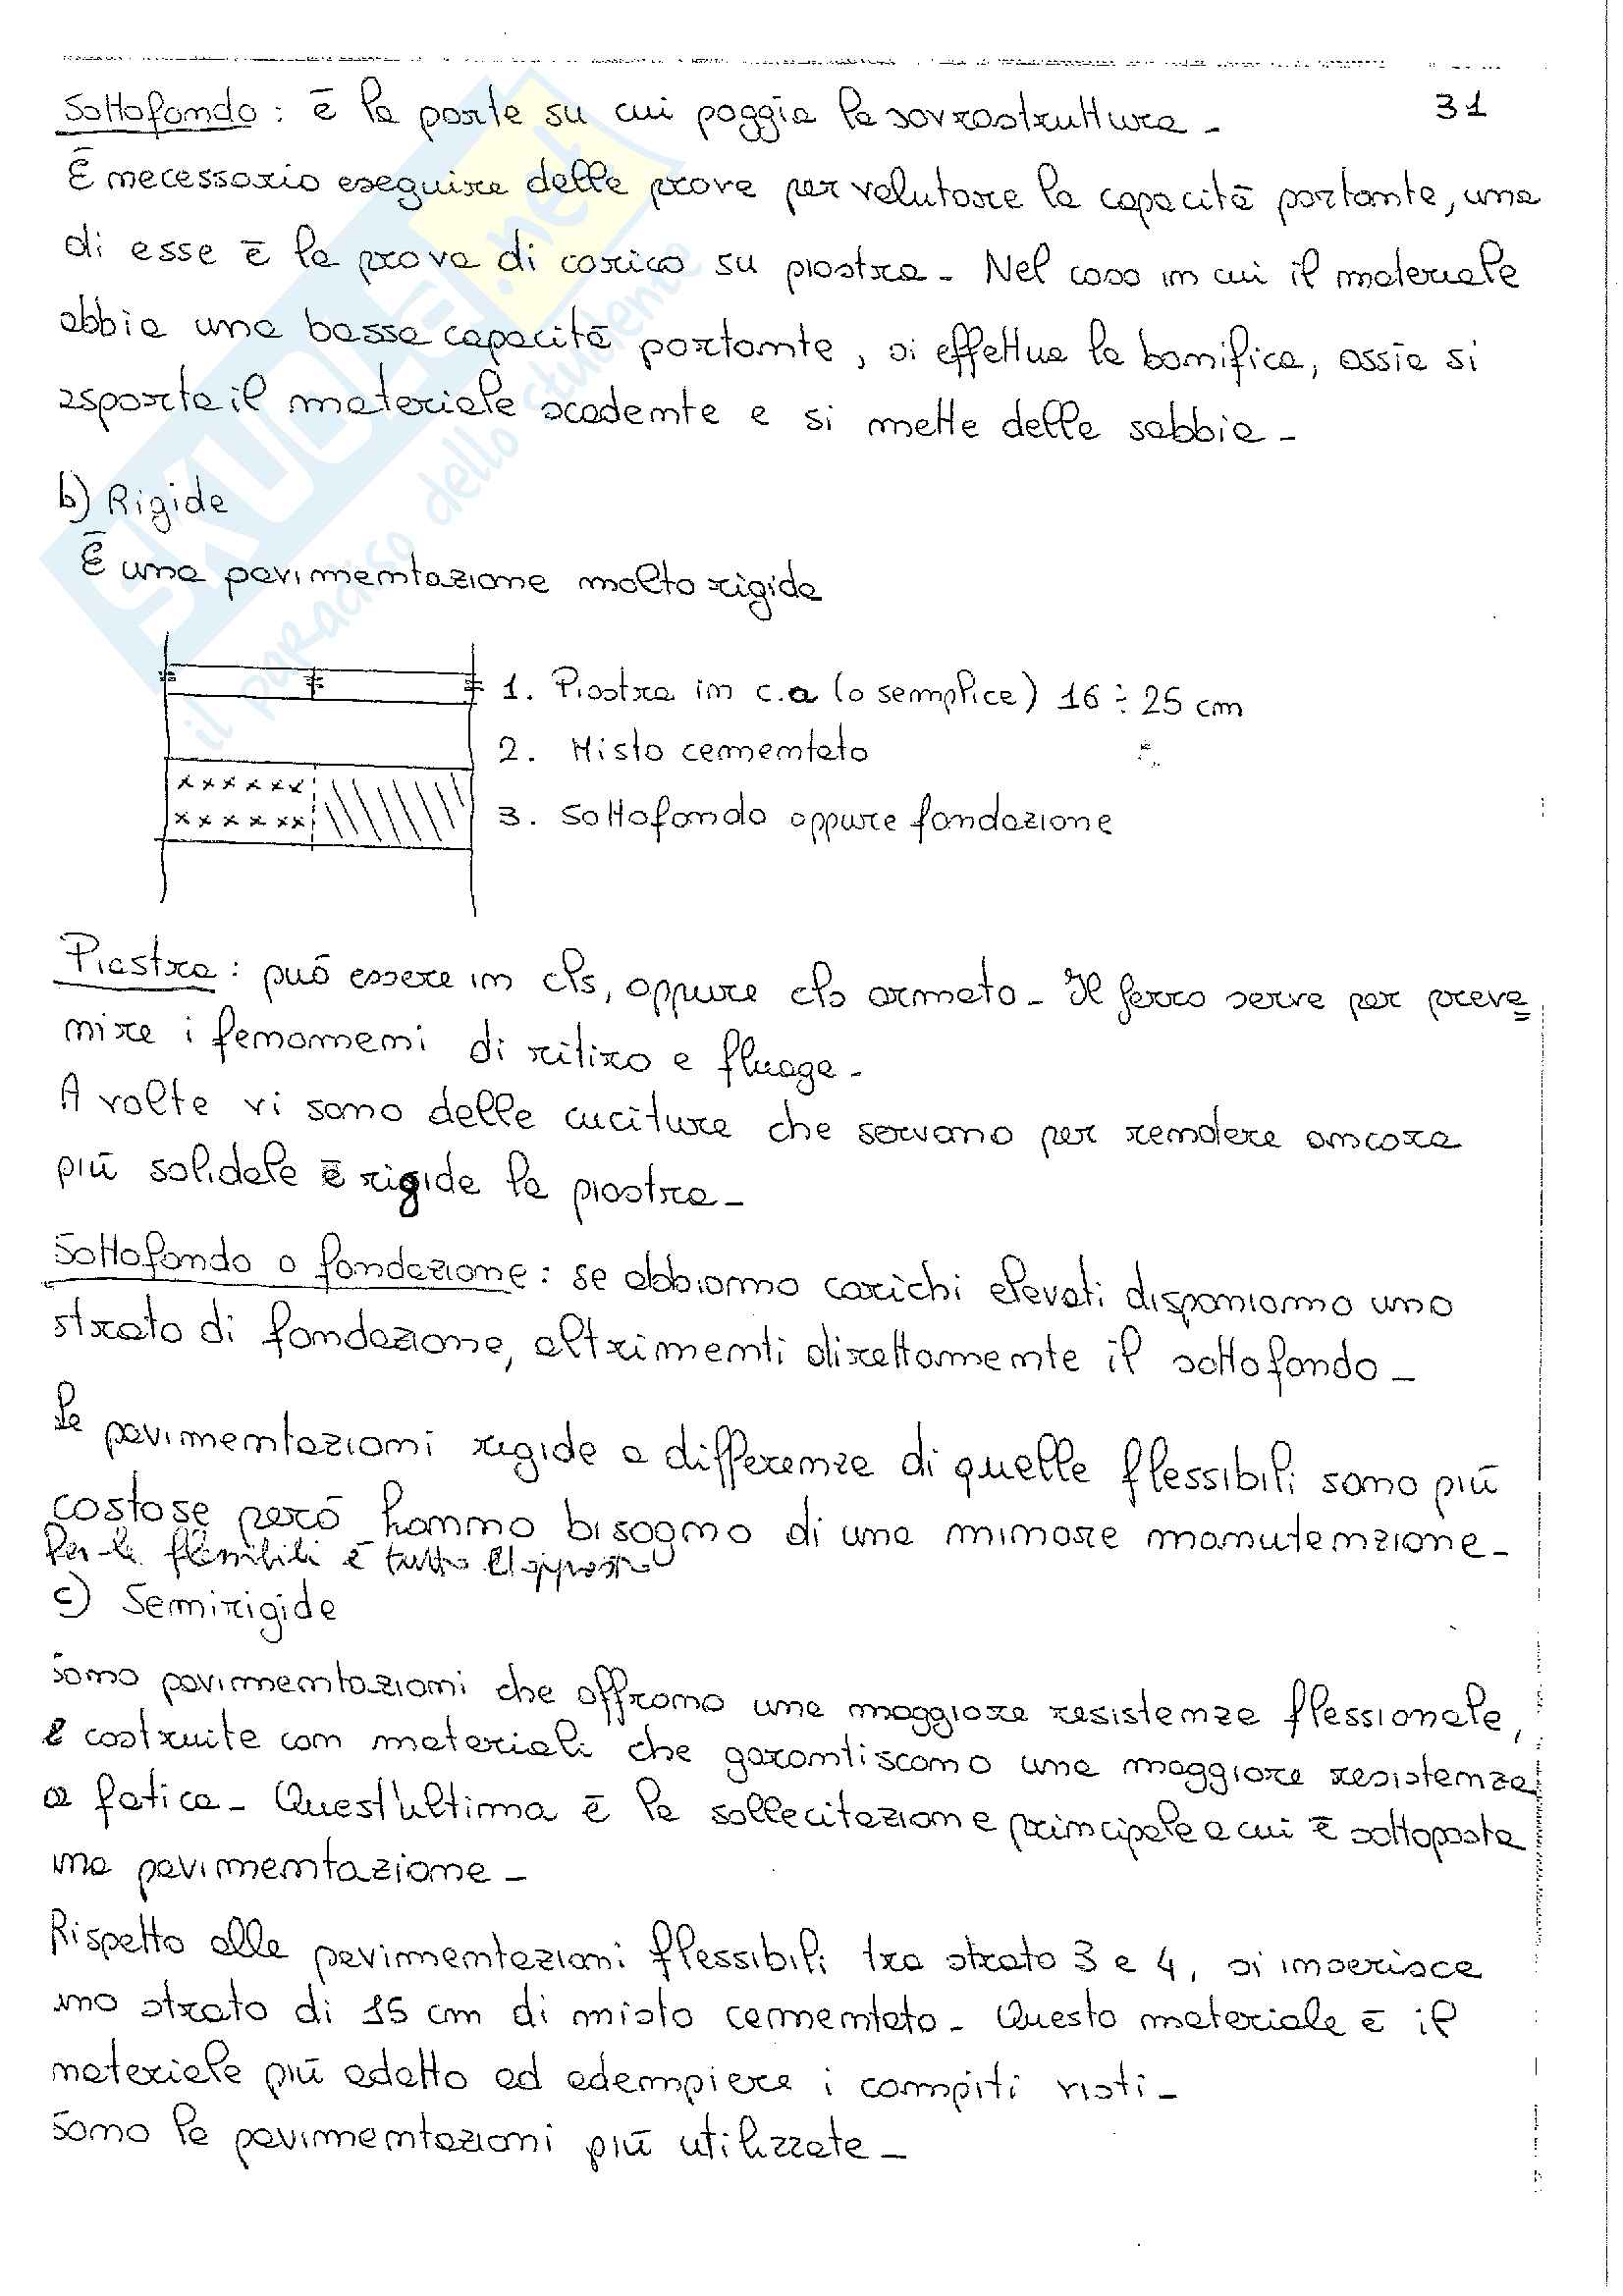 Sottofondo: è la parte su cui poggia la sovrastruttura. 31
È necessario eseguire delle prove per valutare la capacità portante, una
di esse è la prova di carico su piastra. Nel caso in cui il materiale
abbia una bassa capacità portante, si effettua la bonifica, ossia si
asporta il materiale scadente e si mette della sabbia.
b) Rigide
È una pavimentazione molto rigida
1. Piastra in c.a (o semplice) 16 ÷ 25 cm
2. Misto cementato
3. Sottofondo oppure fondazione
Piastra: può essere in cls, oppure cls armato. Il ferro serve per preve
nire i fenomeni di ritiro e fluage.
A volte vi sono delle cuciture che servono per rendere ancora
più solidale e rigida la piastra.
Sottofondo o fondazione: se abbiamo carichi elevati disponiamo uno
strato di fondazione, altrimenti direttamente il sottofondo.
Le pavimentazioni rigide a differenza di quelle flessibili sono più
costose però hanno bisogno di una minore manutenzione.
Per le flessibili è tutto l'opposto
c) Semirigide
Sono pavimentazioni che offrono una maggiore resistenza flessionale,
e costruite con materiali che garantiscono una maggiore resistenza
a fatica. Quest'ultima è la sollecitazione principale a cui è sottoposta
una pavimentazione.
Rispetto alle pavimentazioni flessibili tra strato 3 e 4, si inserisce
uno strato di 15 cm di misto cementato. Questo materiale è il
materiale più adatto ad adempiere i compiti visti.
Sono le pavimentazioni più utilizzate.
SKUOLA.net
il paradiso dello studente